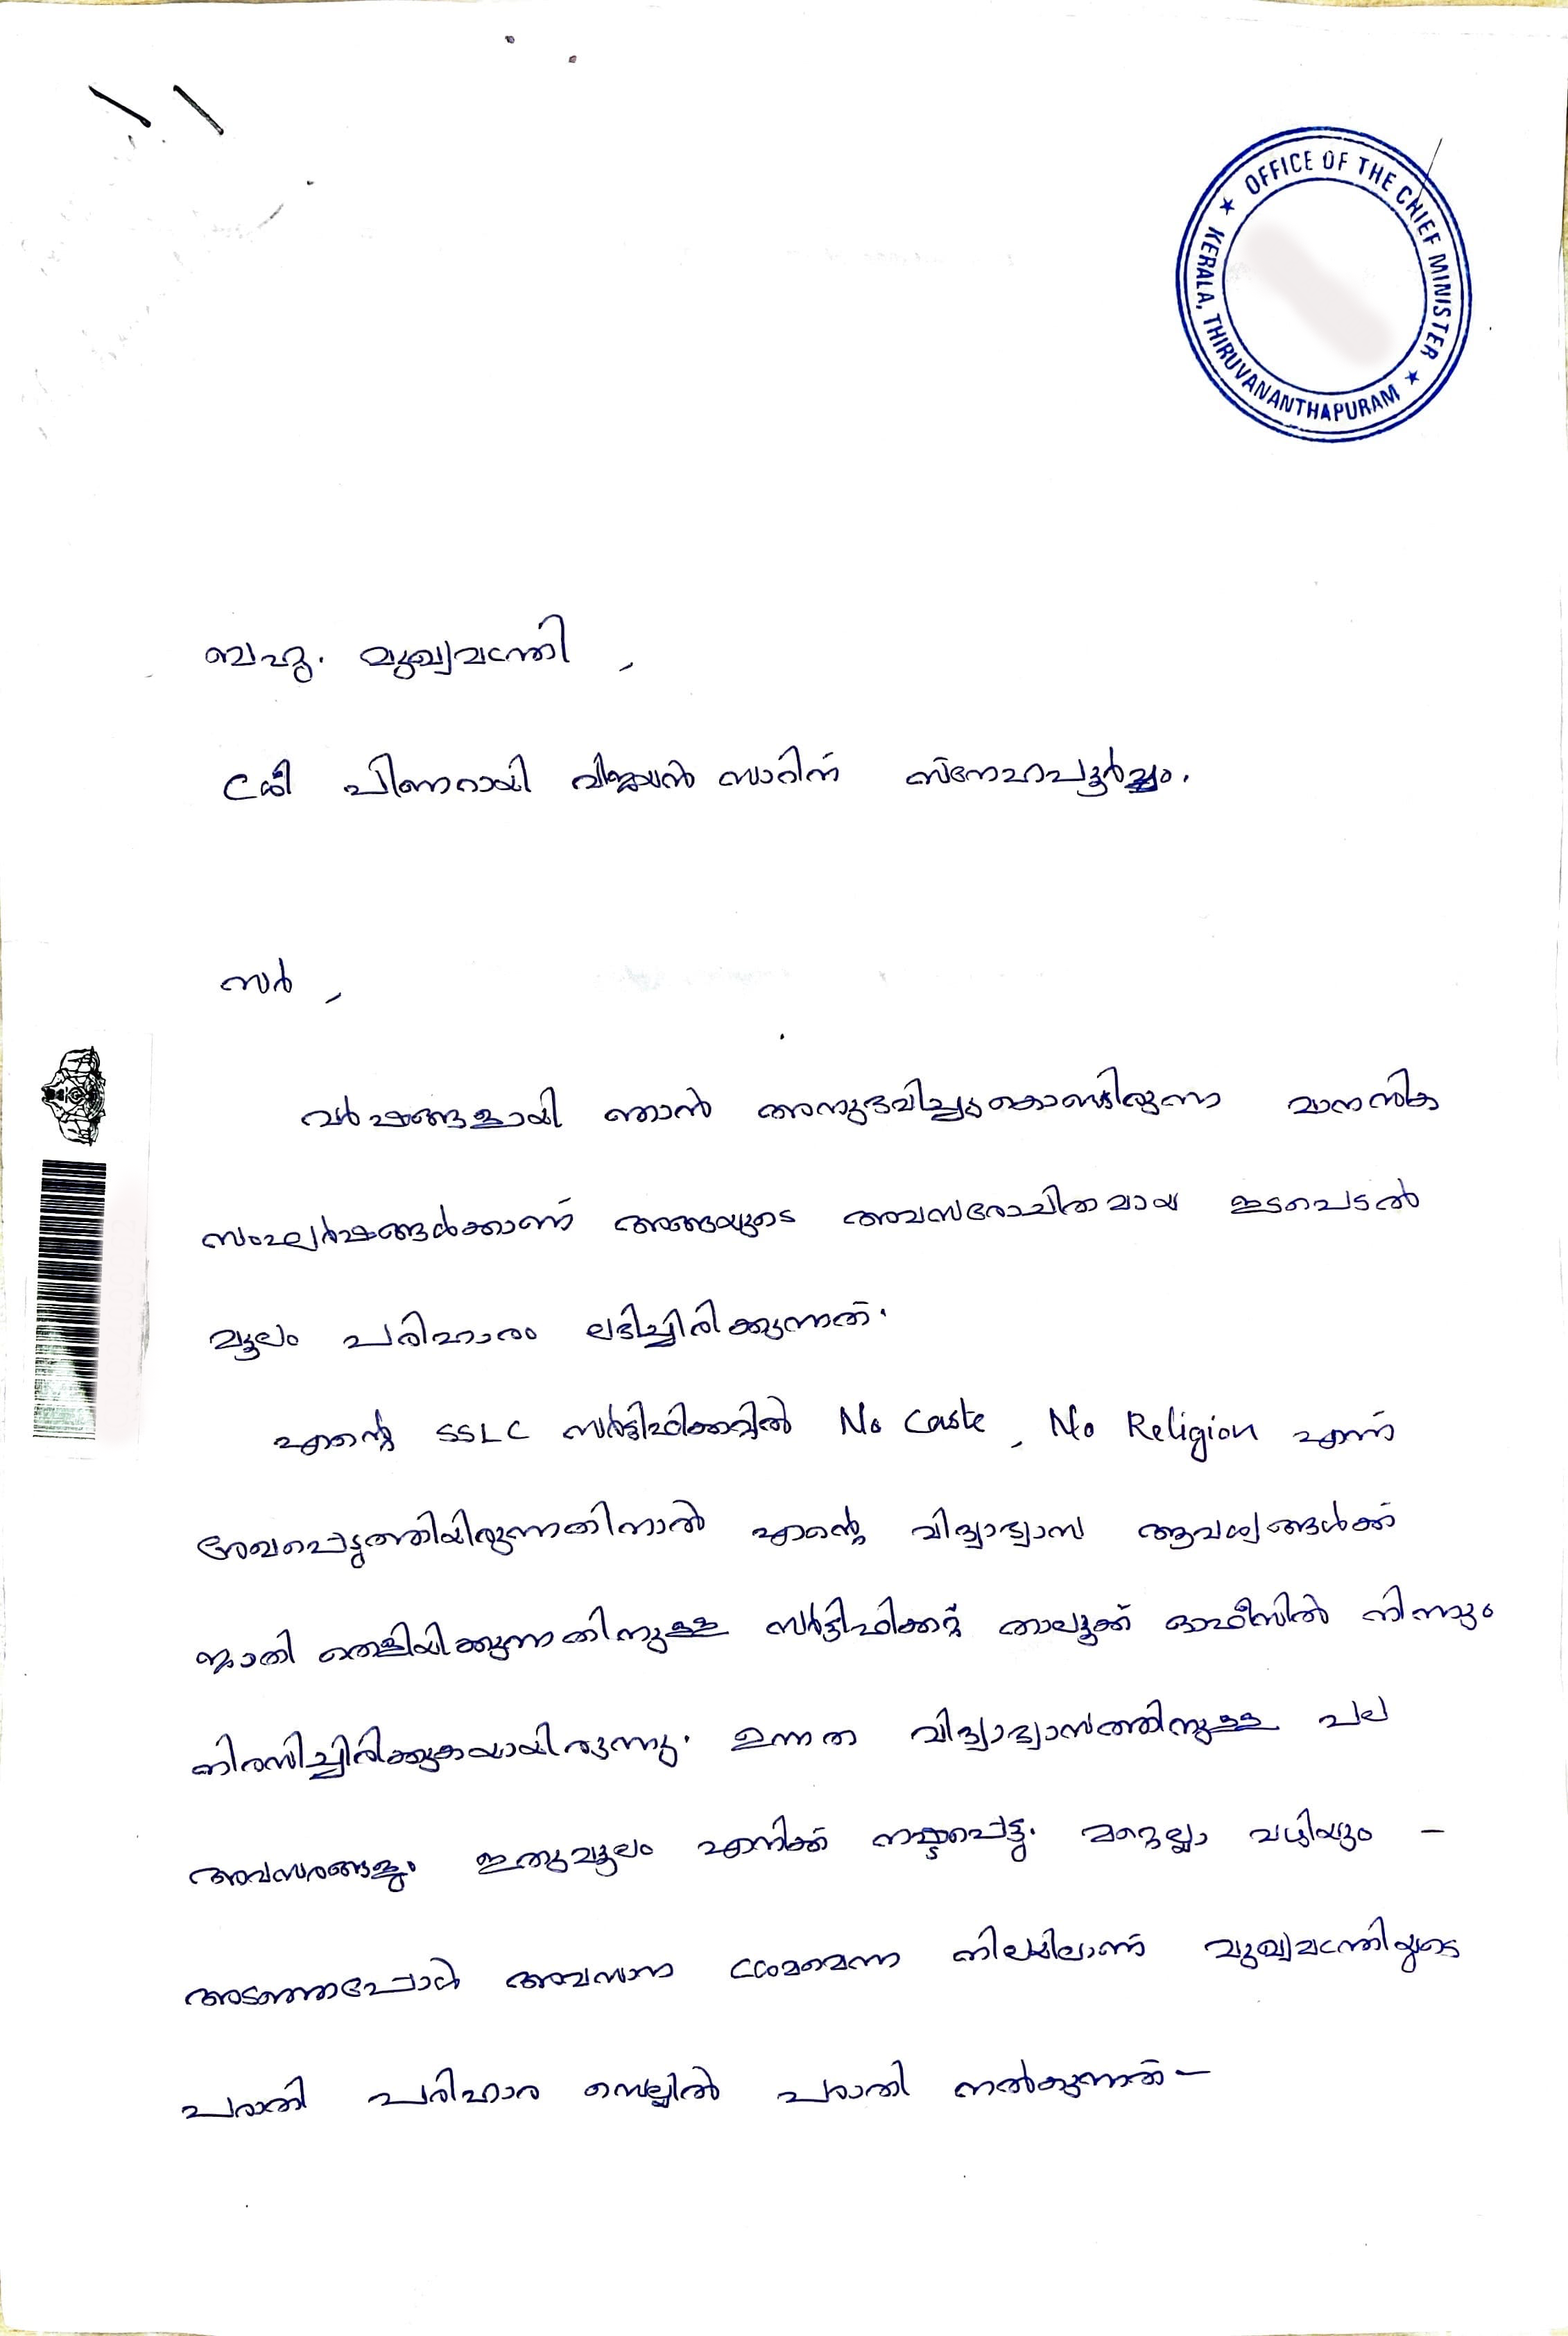 OFFICE OF THE CHIEF MINISTER
KERALA, THIRUVANANTHAPURAM
ബഹു. മുഖ്യമന്ത്രി,
ശ്രീ പിണറായി വിജയൻ സാറിന് സ്നേഹപൂർവ്വം.
സർ,
വർഷങ്ങളായി ഞാൻ അനുഭവിച്ചുകൊണ്ടിരുന്ന മാനസിക
സംഘർഷങ്ങൾക്കാണ് അങ്ങയുടെ അവസരോചിതമായ ഇടപെടൽ
മൂലം പരിഹാരം ലഭിച്ചിരിക്കുന്നത്.
എന്റെ SSLC സർട്ടിഫിക്കറ്റിൽ No Caste, No Religion എന്ന്
രേഖപ്പെടുത്തിയിരുന്നതിനാൽ എന്റെ വിദ്യാഭ്യാസ ആവശ്യങ്ങൾക്ക്
ജാതി തെളിയിക്കുന്നതിനുള്ള സർട്ടിഫിക്കറ്റ് താലൂക്ക് ഓഫീസിൽ നിന്നും
നിരസിച്ചിരിക്കുകയായിരുന്നു. ഉന്നത വിദ്യാഭ്യാസത്തിനുള്ള പല
അവസരങ്ങളും ഇതുമൂലം എനിക്ക് നഷ്ടപ്പെട്ടു. മറ്റെല്ലാ വഴിയും -
അടഞ്ഞപ്പോൾ അവസാന ശ്രമമെന്ന നിലയിലാണ് മുഖ്യമന്ത്രിയുടെ
പരാതി പരിഹാര സെല്ലിൽ പരാതി നൽകുന്നത് -